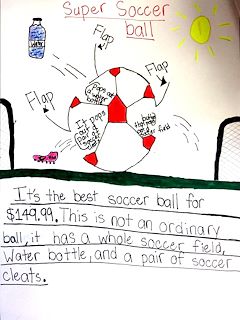 Super Soccer
ball
Water
Flap
Flap
Flap
Pops out
water
bottle
It pops
out
It's the best soccer ball for
$149.99. This is not an ordinary
ball, it has a whole soccer field,
Water bottle, and a pair of soccer
cleats.